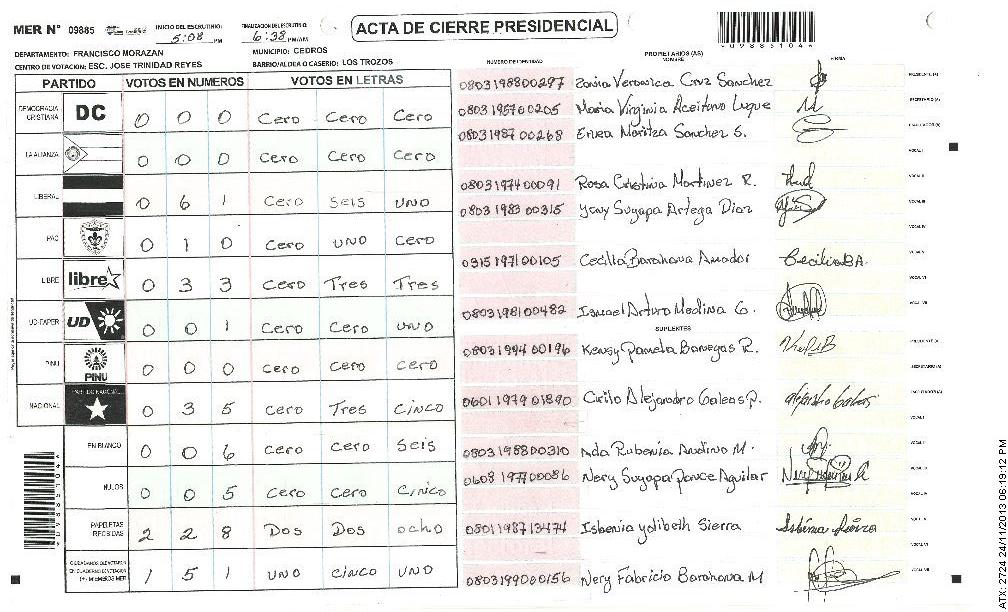 MER N° 09885
INICIO DEL ESCRUTINIO: 5:08 PM
FINALIZACION DEL ESCRUTINIO 6:38 PM/AM
ACTA DE CIERRE PRESIDENCIAL
DEPARTAMENTO: FRANCISCO MORAZAN
MUNICIPIO: CEDROS
CENTRO DE VOTACION: ESC. JOSE TRINIDAD REYES
BARRIO/ALDEA O CASERIO: LOS TROZOS
PARTIDO VOTOS EN NUMEROS VOTOS EN LETRAS
DEMOCRACIA CRISTIANA DC 0 0 0 Cero Cero Cero
LA ALIANZA 0 0 0 Cero Cero Cero
LIBERAL 0 6 1 Cero Seis UNO
PAC 0 1 0 Cero UNO Cero
LIBRE libre 0 3 3 Cero Tres Tres
UD-FAPER UD 0 0 1 Cero Cero UNO
PINU PINU 0 0 0 Cero Cero Cero
NACIONAL PARTIDO NACIONAL 0 3 5 Cero Tres CINCO
EN BLANCO 0 0 6 Cero Cero Seis
NULOS 0 0 5 Cero Cero CINCO
PAPELETAS RECIBIDAS 2 2 8 Dos Dos ocho
(+) MIEMBROS MER 1 5 1 UNO CINCO UNO
NUMERO DE IDENTIDAD PROPIETARIOS (AS) NOMBRE FIRMA
0803198800297 Sonia Veronica Cruz Sanchez
0803195700205 Maria Virginia Aceituno Luque
0803198700268 Erika Maritza Sanchez S.
0803197400091 Rosa Cristina Martinez R.
0803198300315 Yeny Suyapa Artega Diaz
0315197100105 Cecilia Barahona Amador Cecilia BA.
0803198100482 Ismael Arturo Medina G.
SUPLENTES
0803199400196 Kensy Pamela Banegas R.
0601197901890 Cirilo Alejandro Galeas P.
0803198800310 Ada Rubenia Andino M.
0608197700086 Nery Suyapa Ponce Aguilar
0801198713474 Isbenia yolibeth Sierra
0803199000156 Nery Fabricio Barahona M
ATX: 2724 24/11/2013 06:19:12 PM